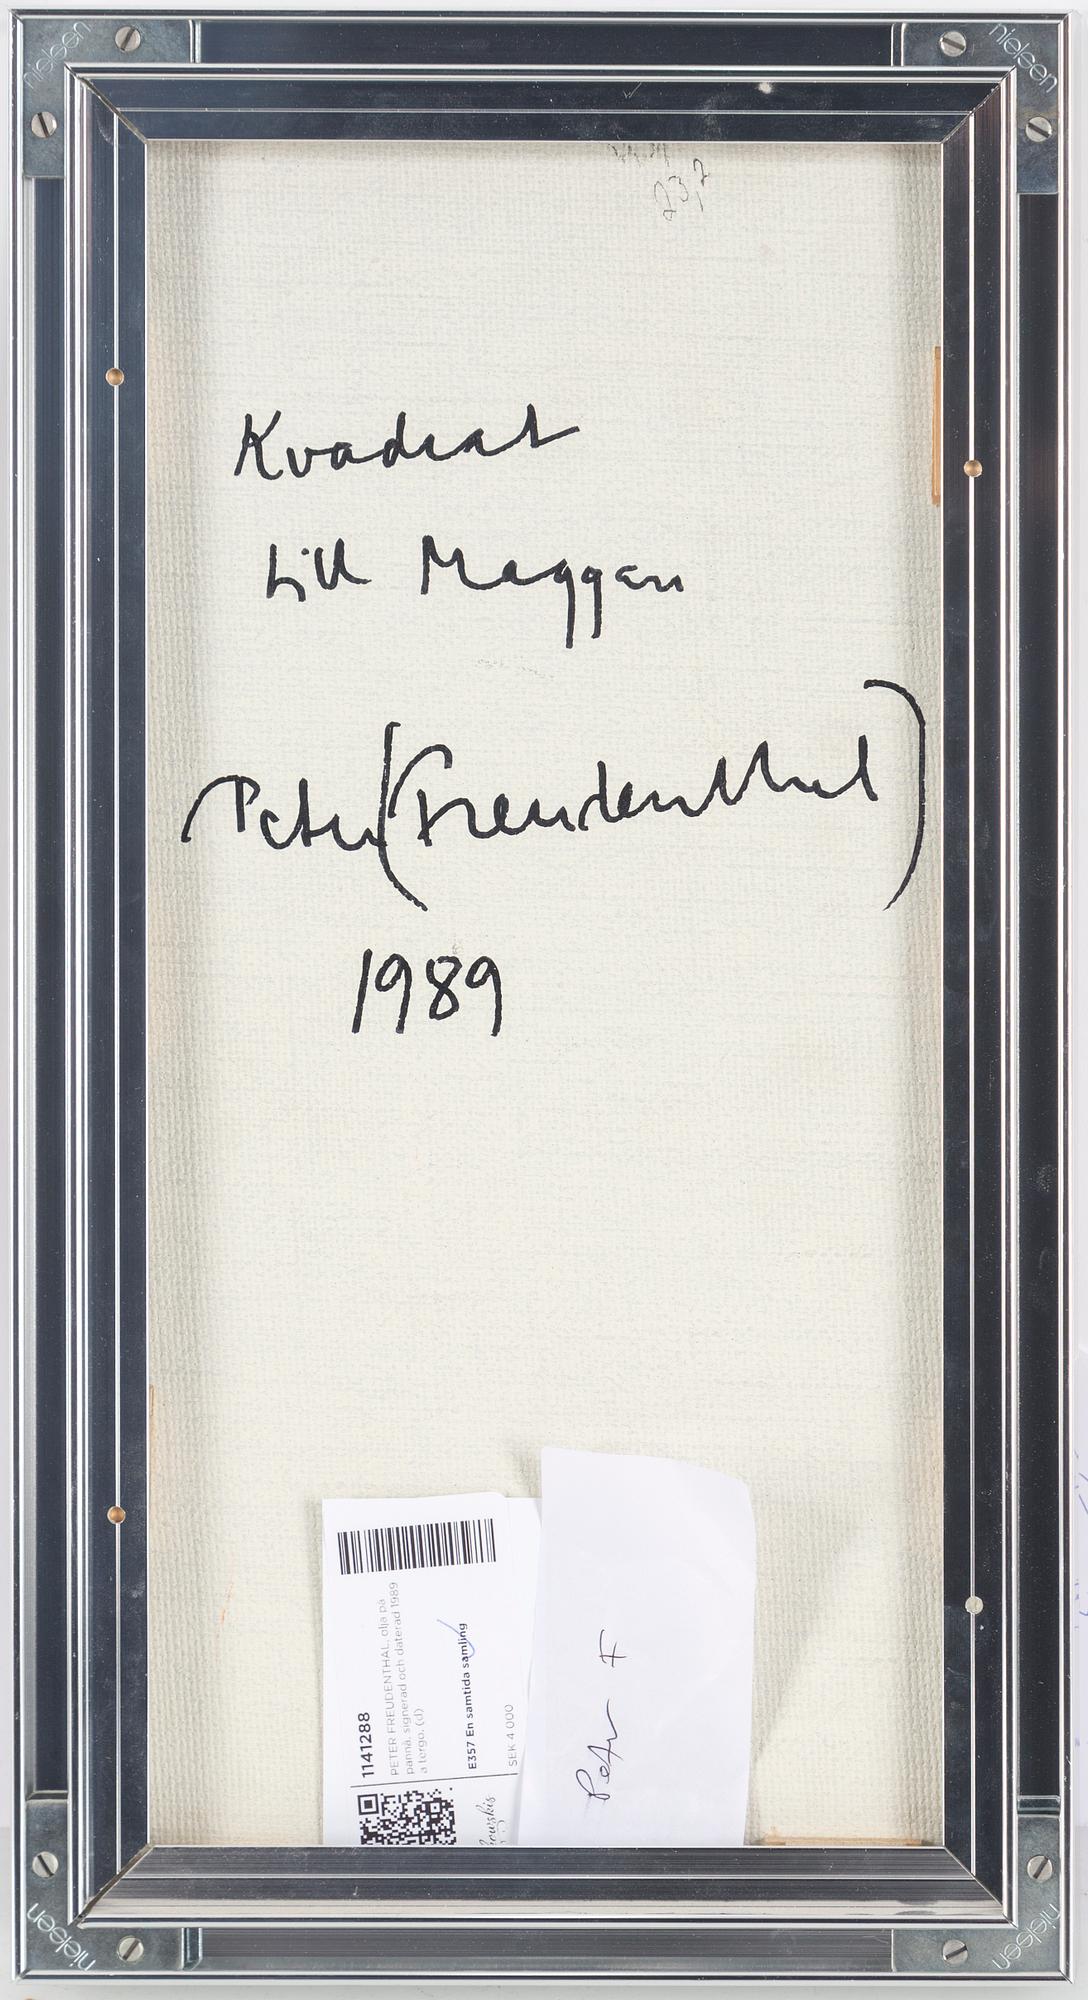 nielsen
nielsen
23,2
Kvadrat
till Maggan
Peter (Freudenthal)
1989
1141288
PETER FREUDENTHAL, olja på
pannå, signerad och daterad 1989
a tergo. (d)
E357 En samtida samling
SEK 4 000
Peter F
nielsen
nielsen